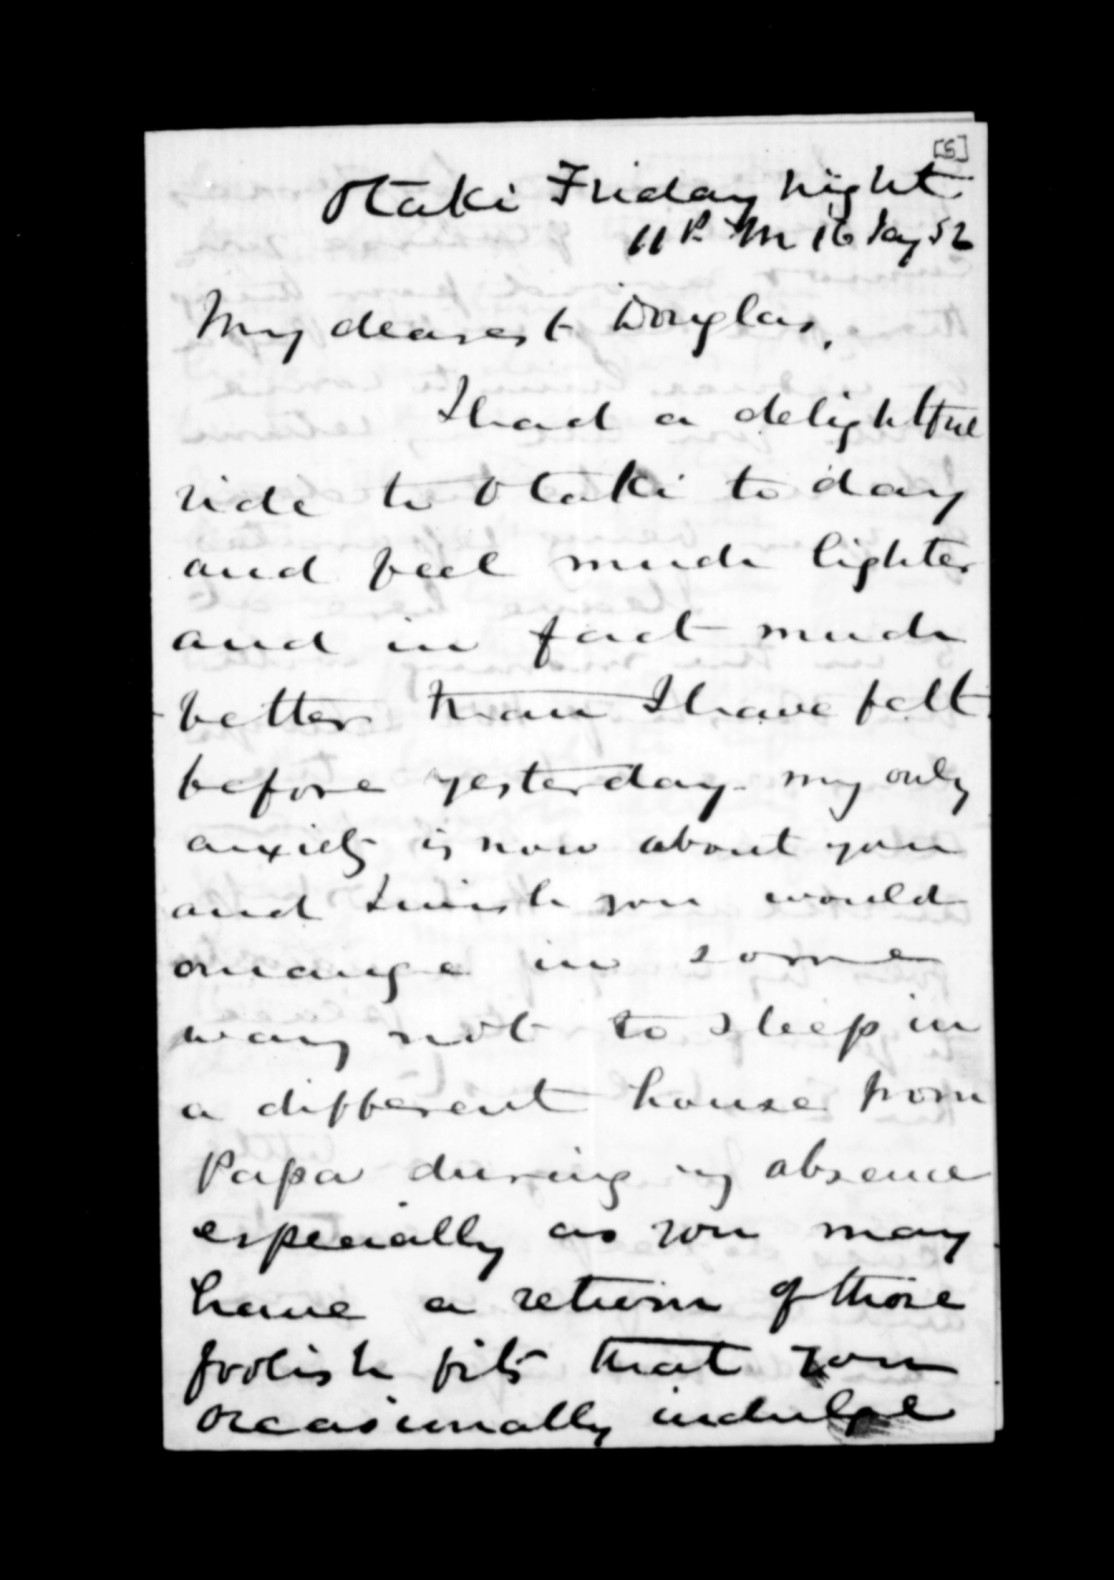 [5]
Otaki Friday night
11 P. M 16 Jay 52
My dearest Douglas,
I had a delightful
ride to Otaki to day
and feel much lighter
and in fact much
better than I have felt
before yesterday. my only
anxiety is now about you
and I wish you would
arrange in some
way not to sleep in
a different house from
Papa during my absence
especially as you may
have a return of those
foolish fits that you
occasionally indulge